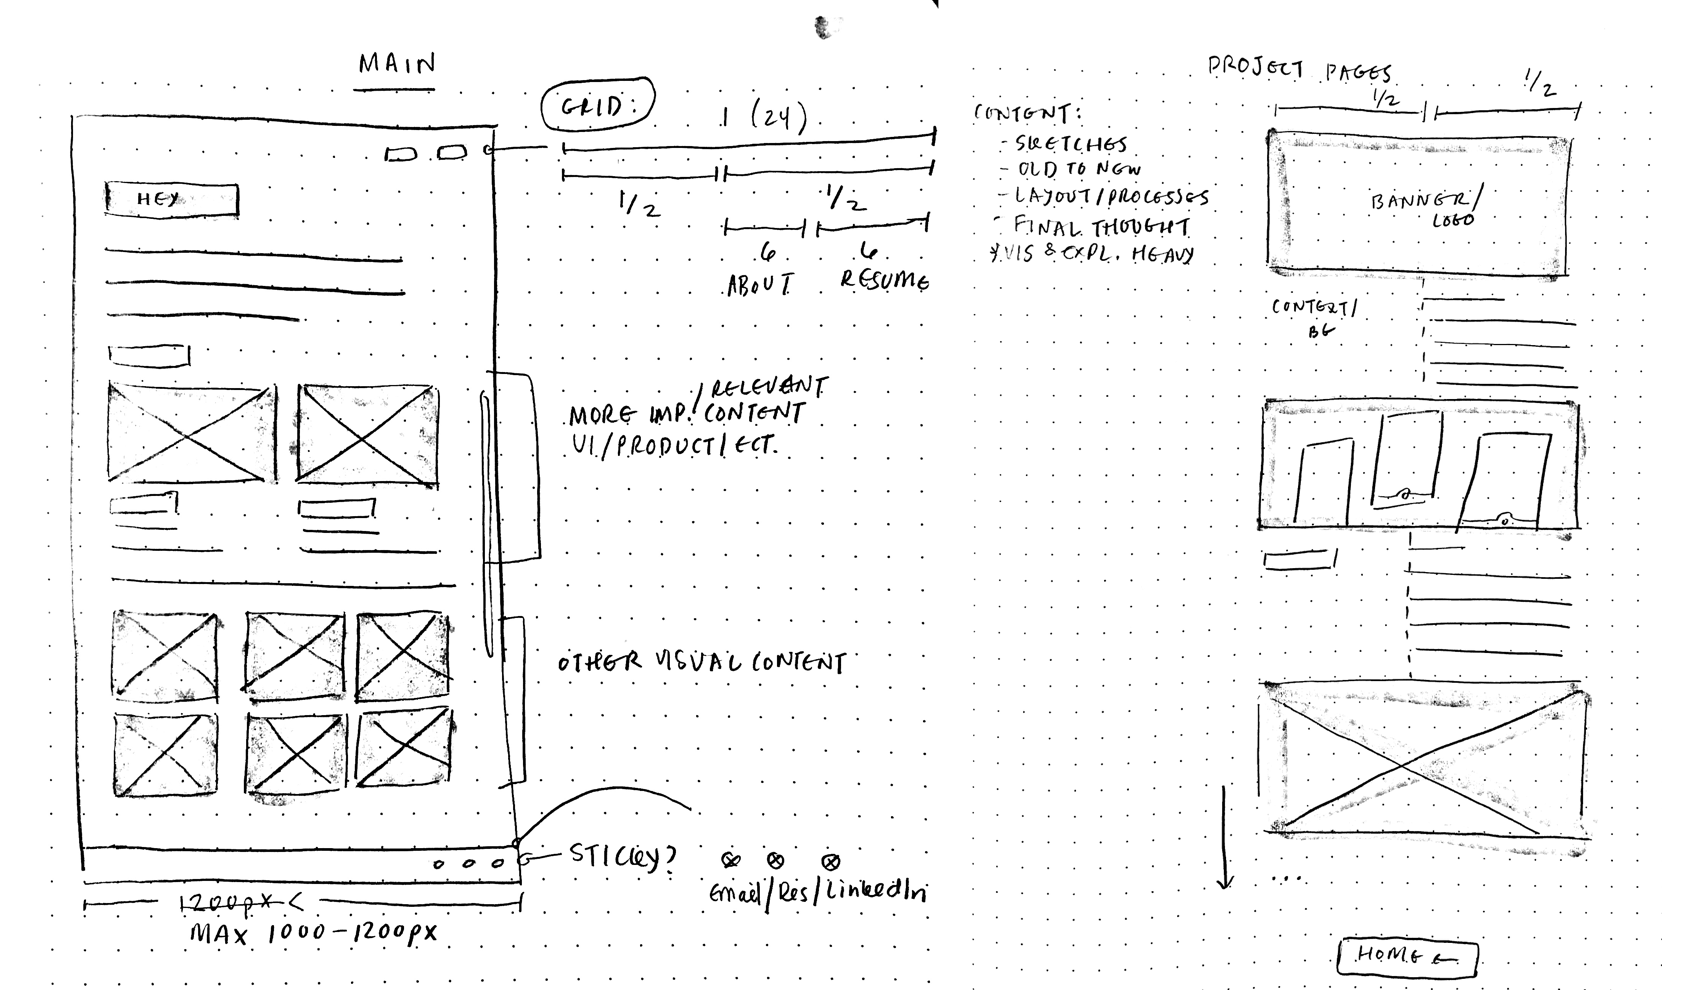 MAIN
HEY
GRID:
1 (24)
1/2
1/2
6
6
ABOUT
RESUME
MORE IMP./RELEVANT CONTENT
UI/PRODUCT/ECT.
OTHER VISUAL CONTENT
STICKY?
Email/Res/LinkedIn
1200px <
MAX 1000-1200PX
PROJECT PAGES
CONTENT:
- SKETCHES
- OLD TO NEW
- LAYOUT/PROCESSES
- FINAL THOUGHT
* VIS & EXPL. HEAVY
1/2
1/2
BANNER/
LOGO
CONTEXT/
BG
...
HOME ←